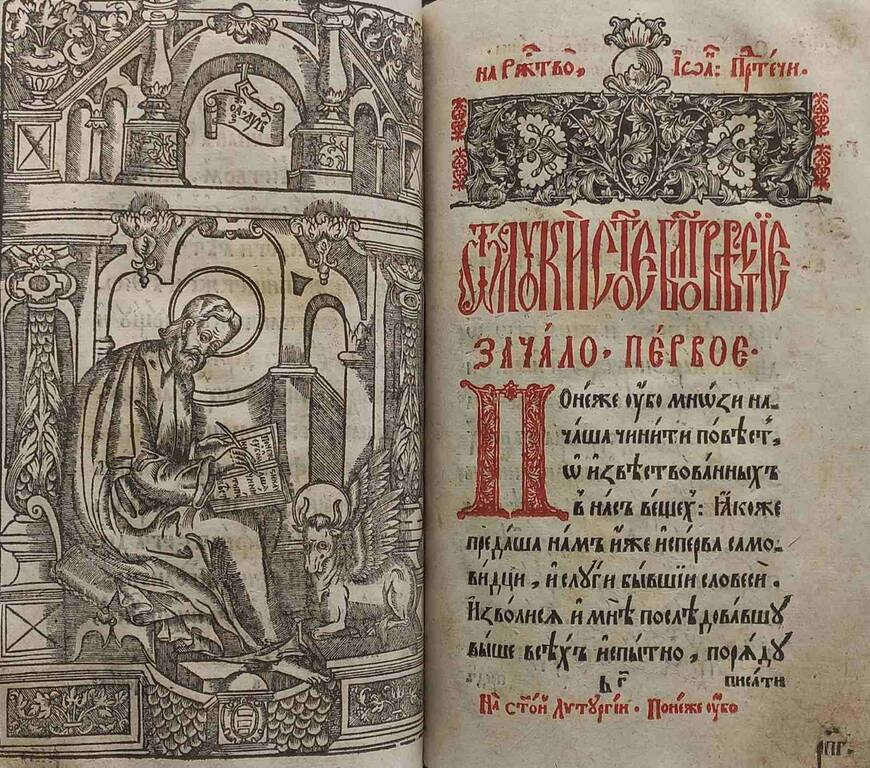 на Рж҃тво̀, І҆ѡа́н: Прⷣте́чи.
Ѿ ЛꙊКИ́ СТО́Е БЛГОВѢ́СТІЕ
ЗАЧА́ЛО · ПЕ́РВОЕ ·
Поне́же ᲂу҆́бо мно́ѕи на‐
ча́ша чини́ти по́вѣсть,
ѡ҆ и҆звѣ́ствованныхъ
в на́съ ве́щехъ: ꙗ҆́коже
преда́ша на́мъ и҆̀же и҆спе́рва само‐
ви́дци, и҆ слꙋги̑ бы́вшїи словесѝ.
И҆зво́лисѧ и҆ мнѣ̀ послѣ́довавшꙋ
вы́ше всѣ́хъ и҆спы́тно, порѧ́дꙋ
писа́ти
в҃г
На̀ сто́й Литꙋргі́и. Поне́же ᲂу҆́бо
рп҃г.